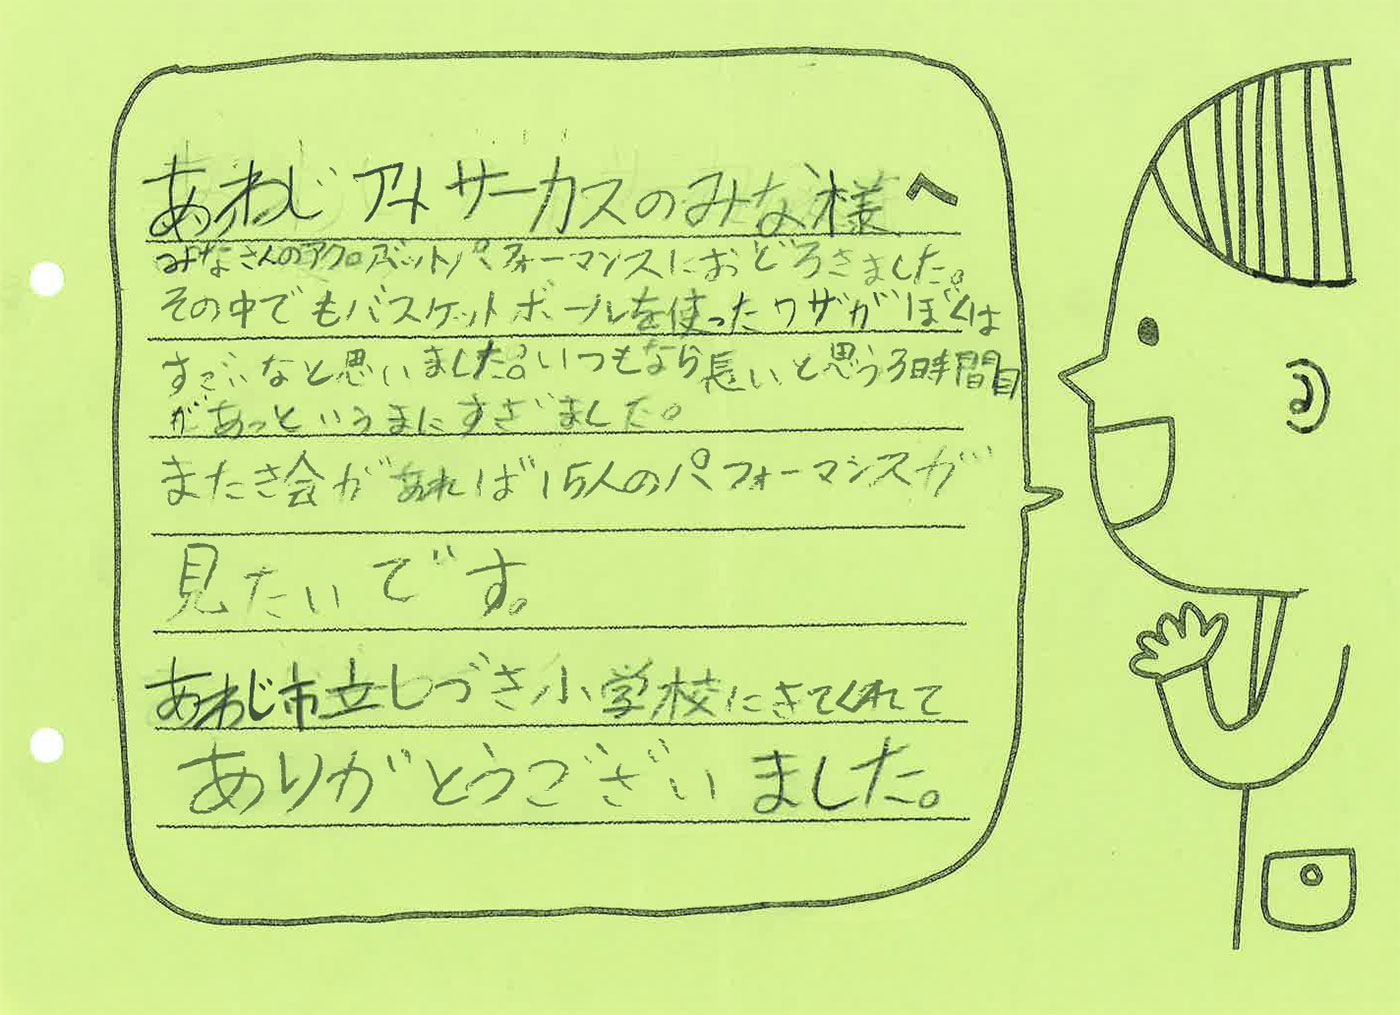 あわじアートサーカスのみな様へ
みなさんのアクロバットパフォーマンスにおどろきました。
その中でもバスケットボールを使ったワザがぼくは
すごいなと思いました。いつもなら長いと思う3時間目
があっというまにすぎました。
またき会があれば15人のパフォーマンスが
見たいです。
あわじ市立しづき小学校にきてくれて
ありがとうございました。